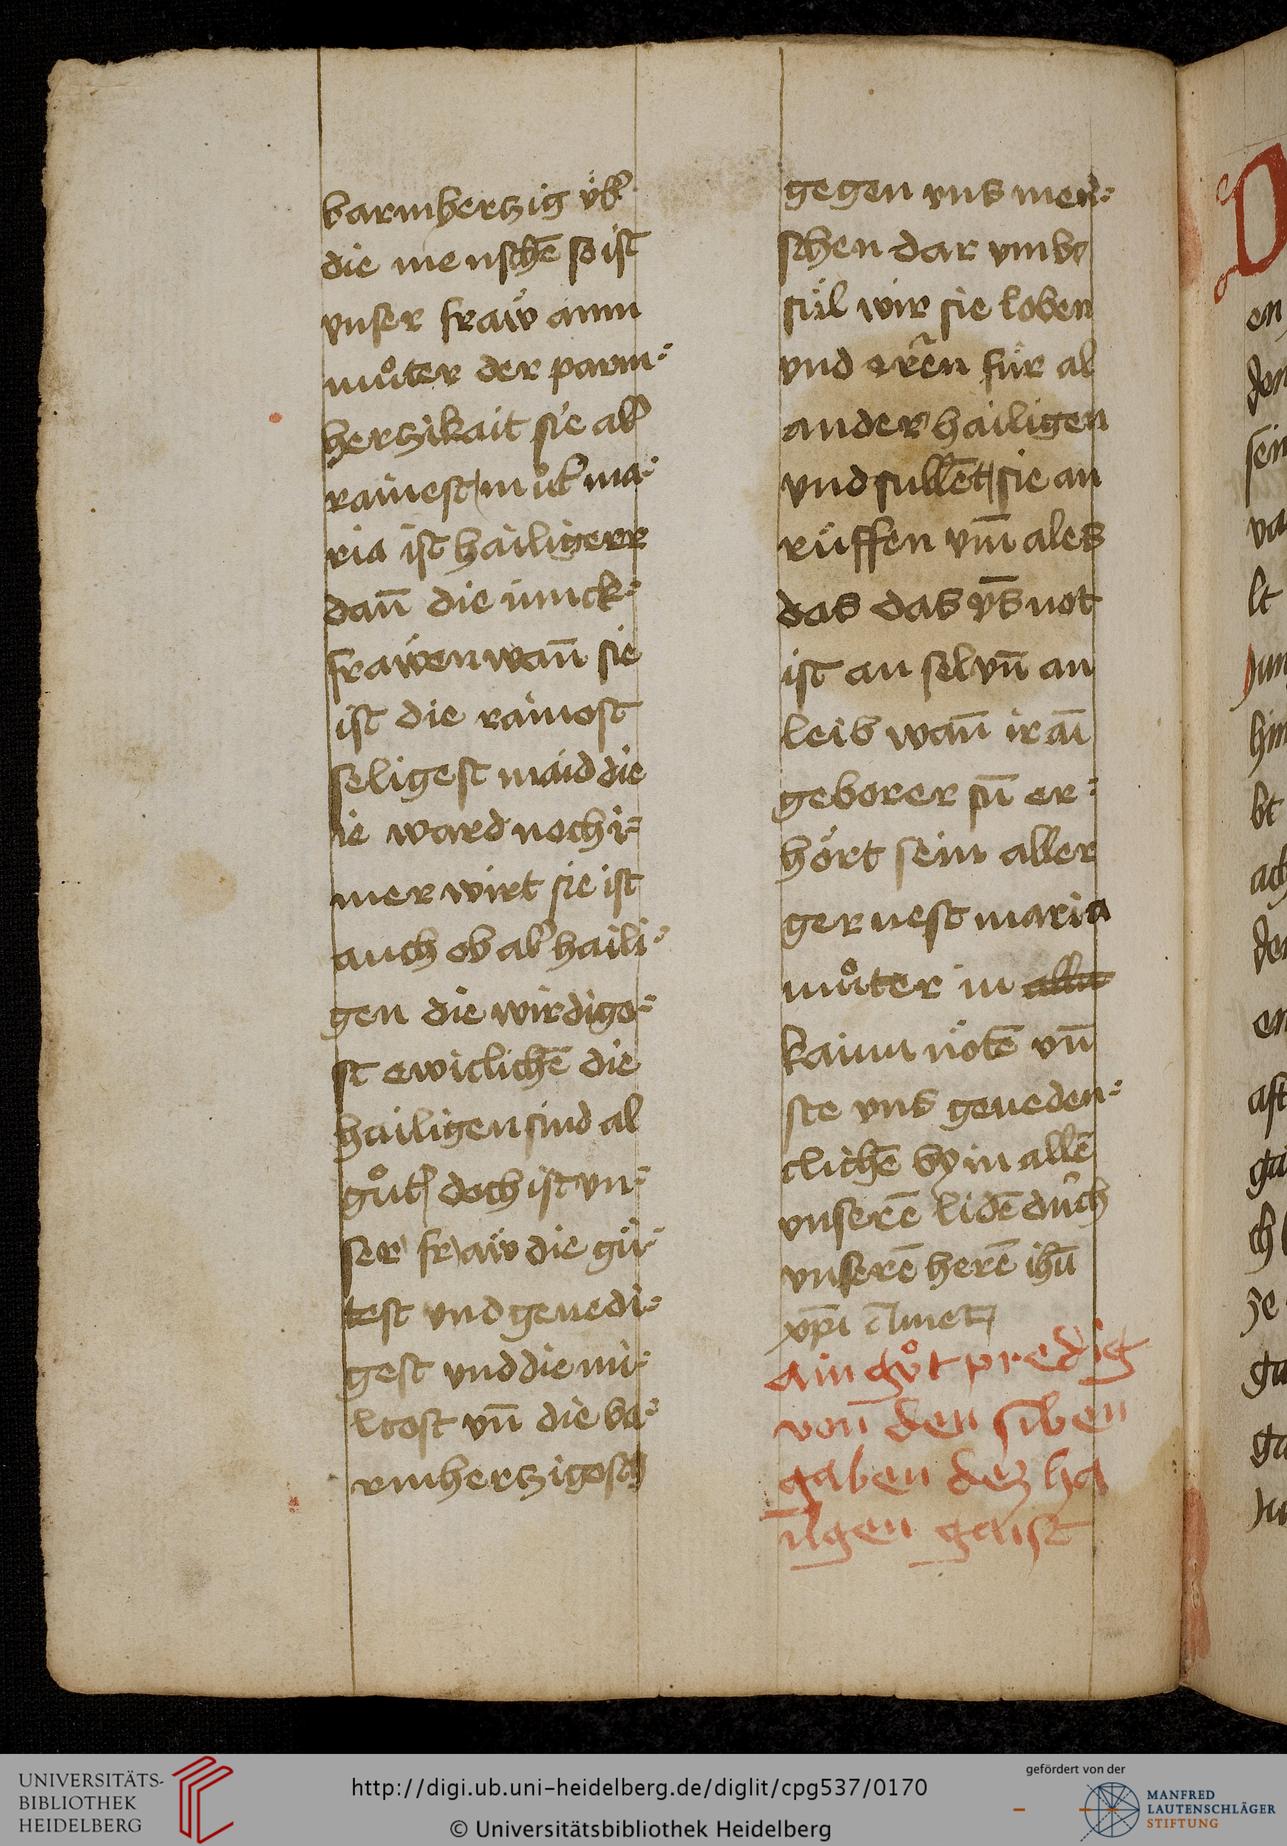 barmhertzig vͤb̾
die menschē so ist
vnser fraẅ ainn
muͦter der parm⸗
hertzikait sie al̾
rainest muͦt̾ ma⸗
ria ist hailigerr
dan̄ die iunck⸗
fraẅen wan̄ sie
ist die rainost
seligest maid die
ie ward noch i⸗
mer wirt sie ist
auch ob al̾ haili⸗
gen die wirdigo⸗
st ewiclichē die
hailigen sind al
guͦt doch ist vn⸗
ser fraẅ die guͤ⸗
test vnd genedi⸗
gest vnd die mi⸗
ltost vn̄ die ba⸗
rmhertzigosch
gegen vns men⸗
schen dar vmb
suͤl wir sie loben
vnd erēn fuͤr al
ander hailigen
vnd sullēt sie an
ruͤffen vm̄ ales
das das vn̄s not
ist an sel vn̄ an
leib wan̄ ir ai
geborer sū er⸗
hoͤrt sein aller
gernest maria
muͦter in alln
kainn noͤtē vn̄
ste vns geneden⸗
clichē by in allē
vnserē lidē durch
vnserē herē ihū
xp̄i Amen
ain guͦt predig
von den siben
gaben dez ha
ilgen gaist
en
lt
hin
bt
er
UNIVERSITÄTS-
BIBLIOTHEK
HEIDELBERG
http://digi.ub.uni-heidelberg.de/diglit/cpg537/0170
© Universitätsbibliothek Heidelberg
gefördert von der
MANFRED
LAUTENSCHLÄGER
STIFTUNG